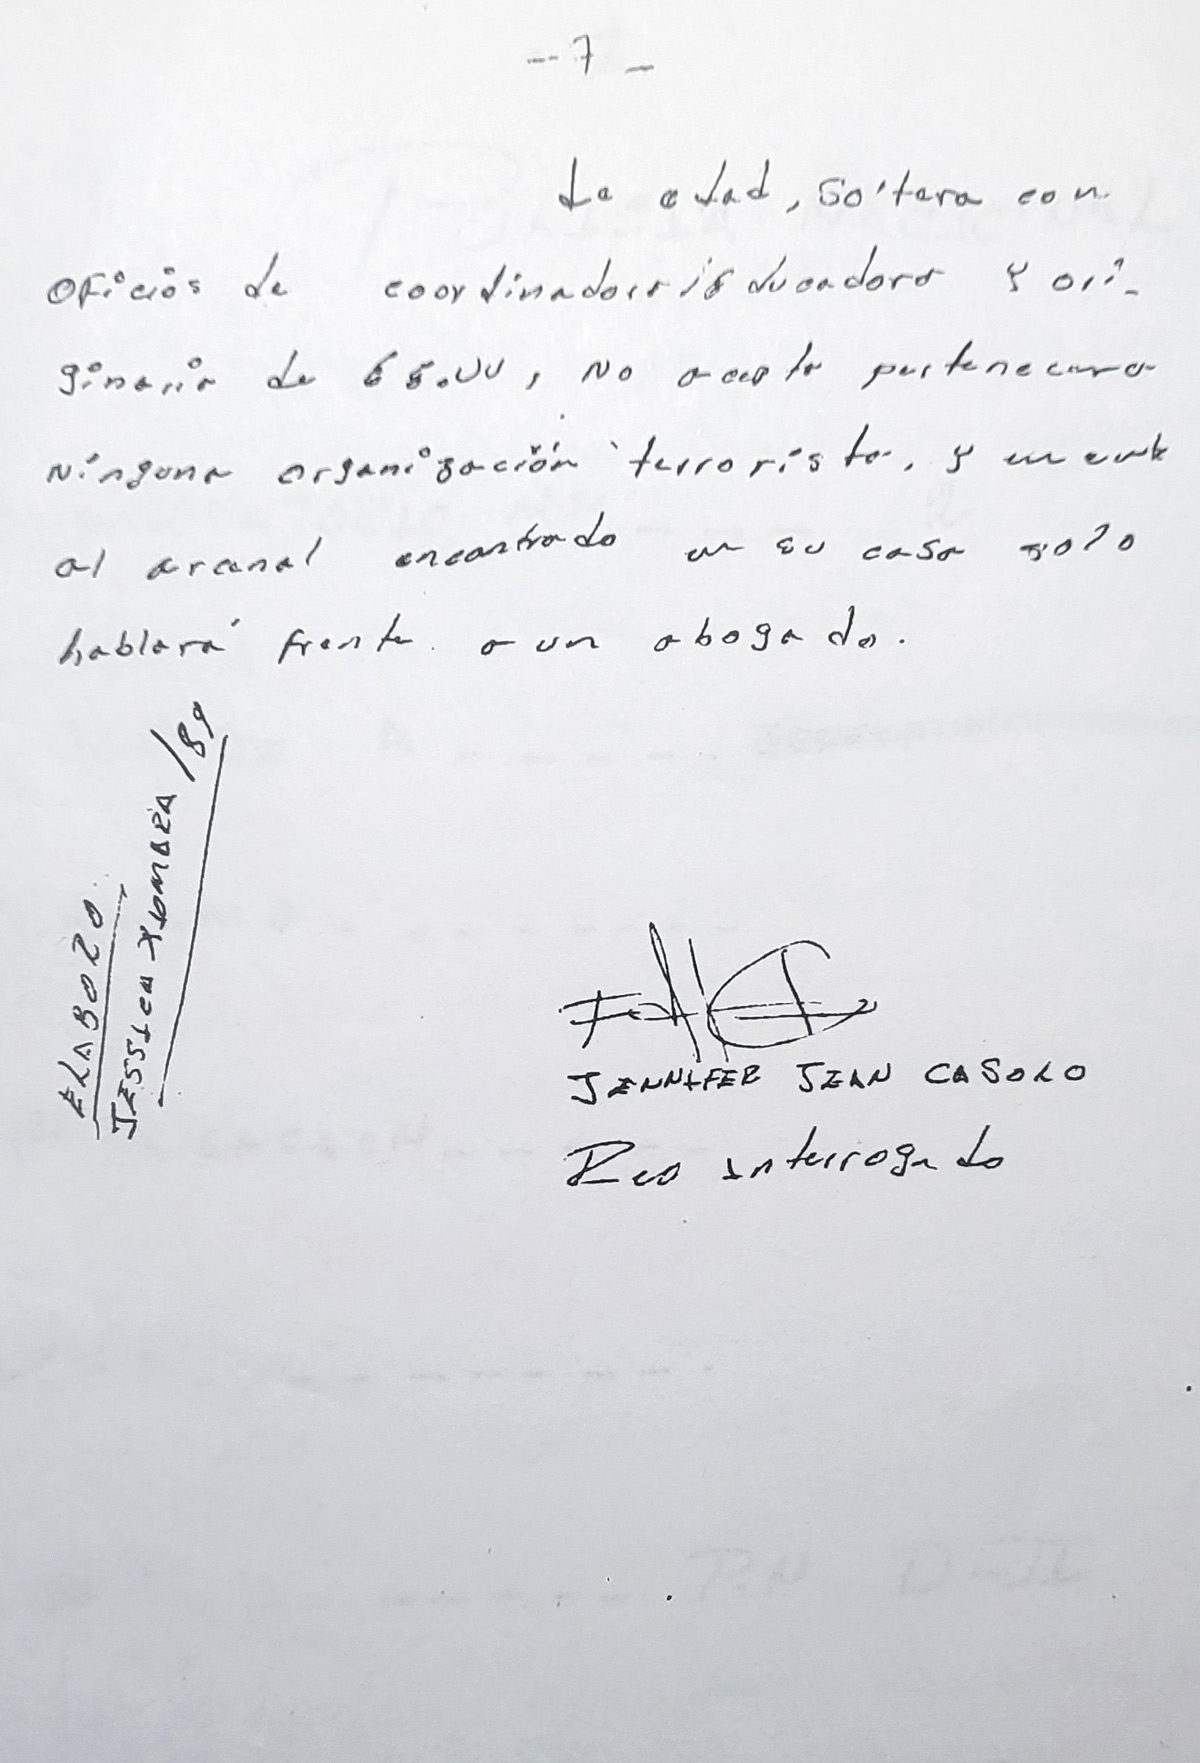 -- 7 -
de edad, soltera con
oficios de coordinadora y educadora y ori-
ginaria de EE.UU, no acepta pertenecer a
ninguna organización terrorista, y en cuanto
al arcenal encontrado en su casa solo
hablará frente a un abogado.
ELABORO
JESSICA XIOMARA /89
JENNIFER JEAN CASOLO
Reo interrogado